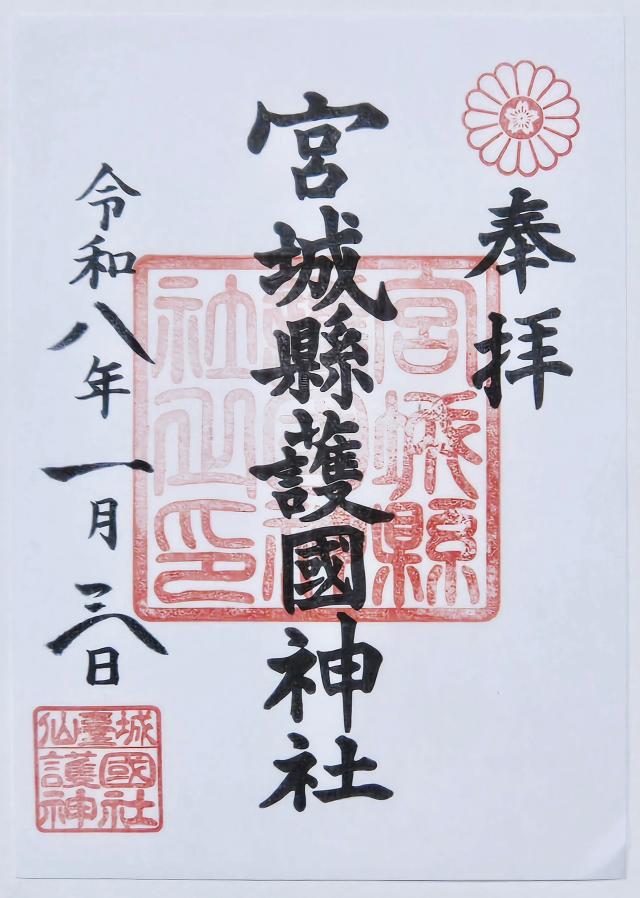 奉拝
宮城縣護國神社
宮城縣
護國神
社之印
令和八年一月二八日
仙臺城
護國
神社